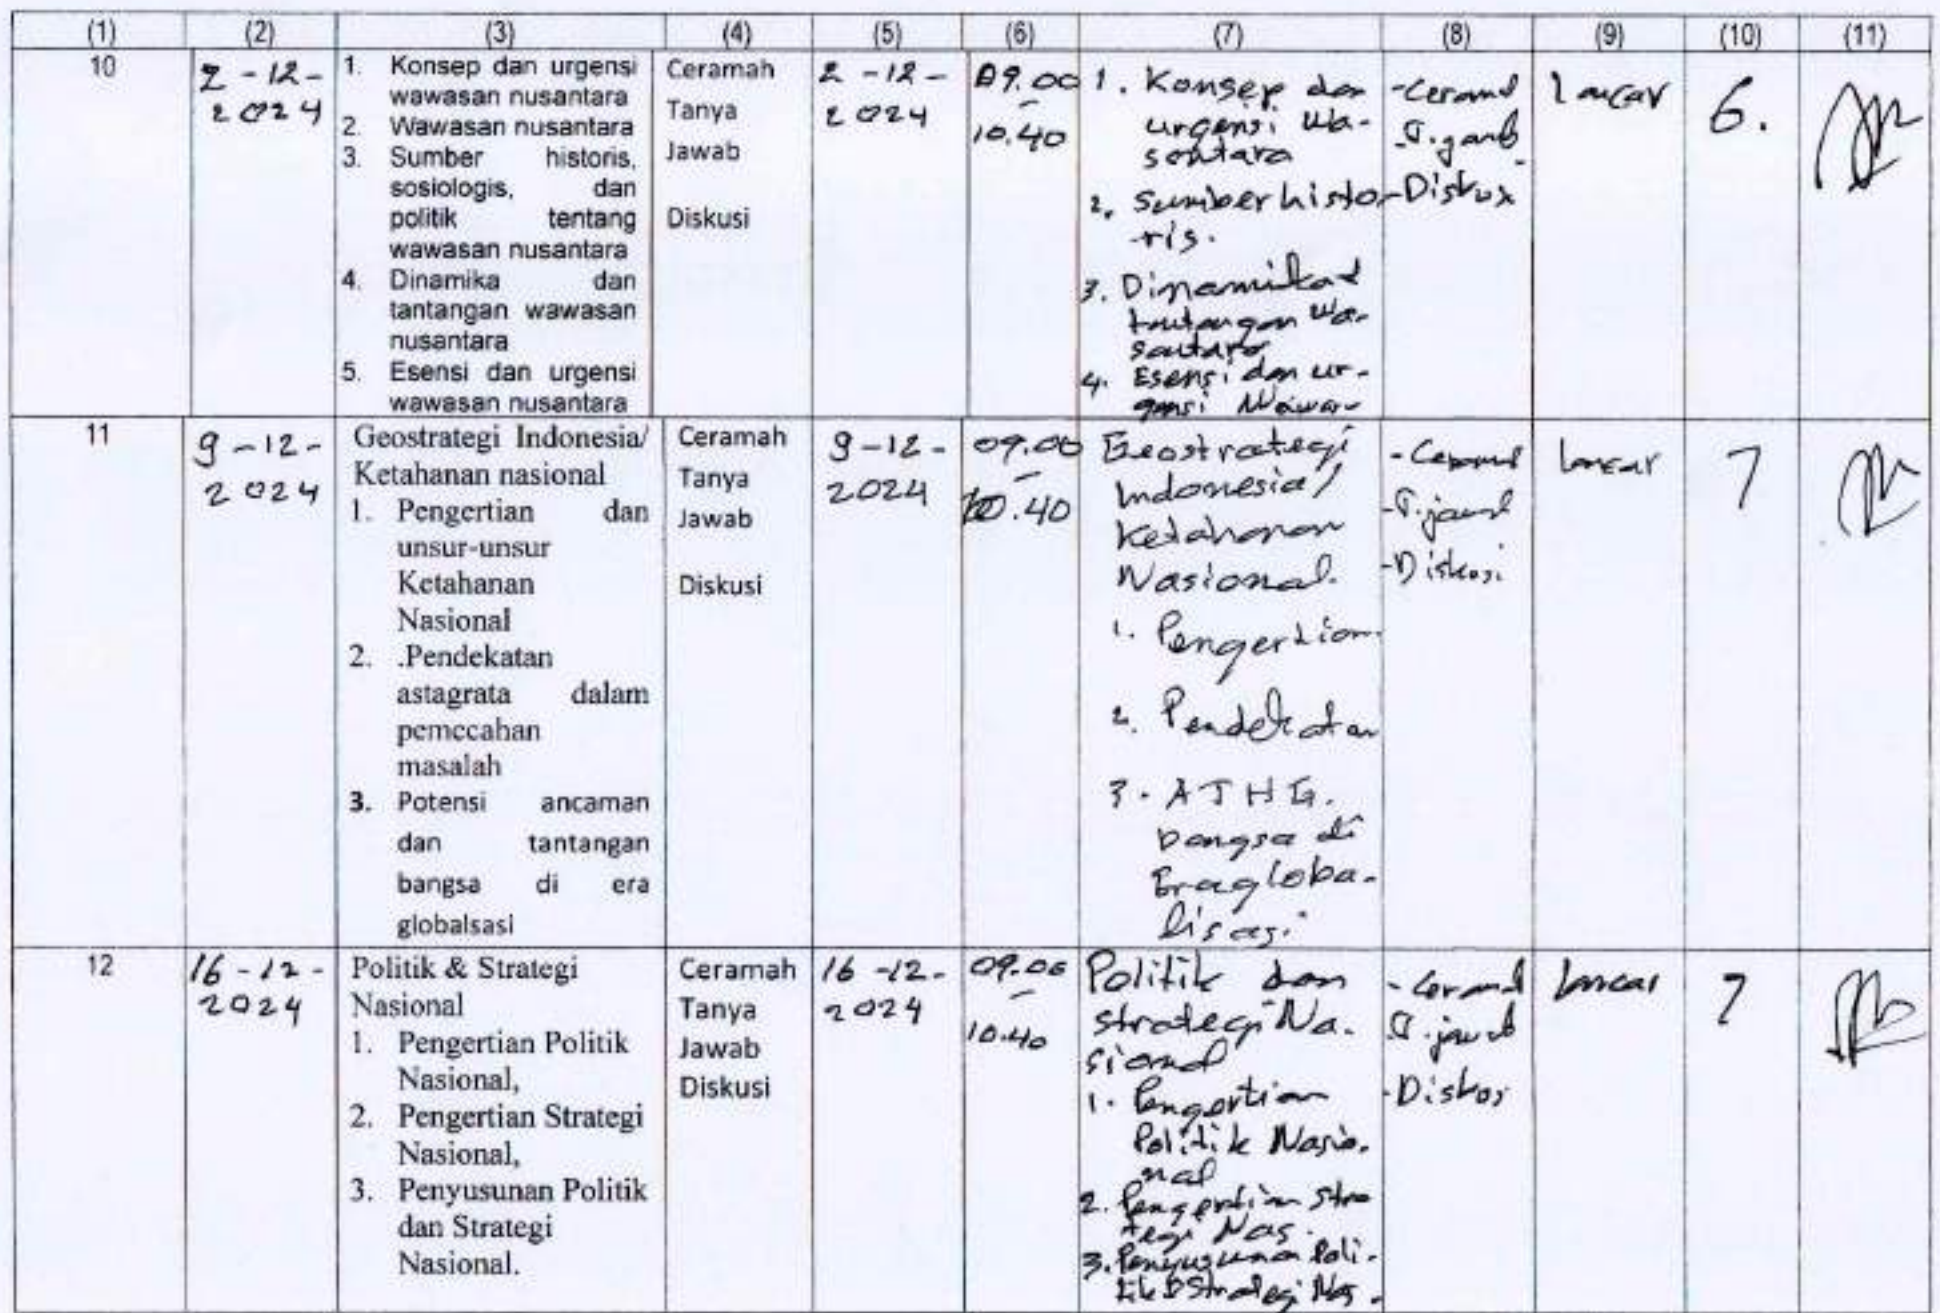 (1) (2) (3) (4) (5) (6) (7) (8) (9) (10) (11)
10
2-12-
2024
1. Konsep dan urgensi
wawasan nusantara
2. Wawasan nusantara
3. Sumber historis,
sosiologis, dan
politik tentang
wawasan nusantara
4. Dinamika dan
tantangan wawasan
nusantara
5. Esensi dan urgensi
wawasan nusantara
Ceramah
Tanya
Jawab
Diskusi
2-12-
2024
09.00
-
10.40
1. Konsep dan
urgensi Wa-
santara
2. Sumber histo-
ris.
3. Dinamika &
tantangan Wa-
santara
4. Esensi dan ur-
gensi
-Ceramah
-T.jawab
-Diskusi
Lancar
6.
11
9-12-
2024
Geostrategi Indonesia/
Ketahanan nasional
1. Pengertian dan
unsur-unsur
Ketahanan
Nasional
2. .Pendekatan
astagrata dalam
pemecahan
masalah
3. Potensi ancaman
dan tantangan
bangsa di era
globalsasi
Ceramah
Tanya
Jawab
Diskusi
9-12-
2024
09.00
-
10.40
Geostrategi
Indonesia/
Ketahanan
Nasional.
1. Pengertian
2. Pendekatan
3. ATHG.
bangsa di
Era globa-
lisasi
-Ceramah
-T.jawab
-Diskusi
Lancar
7
12
16-12-
2024
Politik & Strategi
Nasional
1. Pengertian Politik
Nasional,
2. Pengertian Strategi
Nasional,
3. Penyusunan Politik
dan Strategi
Nasional.
Ceramah
Tanya
Jawab
Diskusi
16-12-
2024
09.00
-
10.40
Politik dan
strategi Na-
sional
1. Pengertian
Politik Nasio-
nal
2. Pengertian stra
tegi Nas.
3. Penyusunan Poli-
tik & Strategi Nas.
-Ceramah
T.jawab
-Diskusi
Lancar
7